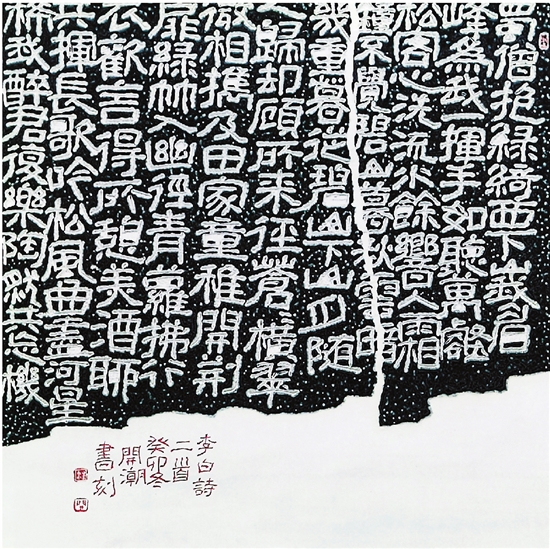 蜀僧抱綠綺西下峨眉
峰爲我一揮手如聽萬壑
松客心洗流水餘響入霜
鐘不覺碧山暮秋雲暗
幾重暮從碧山下山月隨
人歸却顧所来徑蒼橫翠
微相攜及田家童稚開荆
扉綠竹入幽徑青蘿拂行
衣歡言得所憩美酒聊
共揮長歌吟松風曲盡河星
稀我醉君復樂陶然共忘機
李白詩
二首
癸卯冬
開潮
書刻